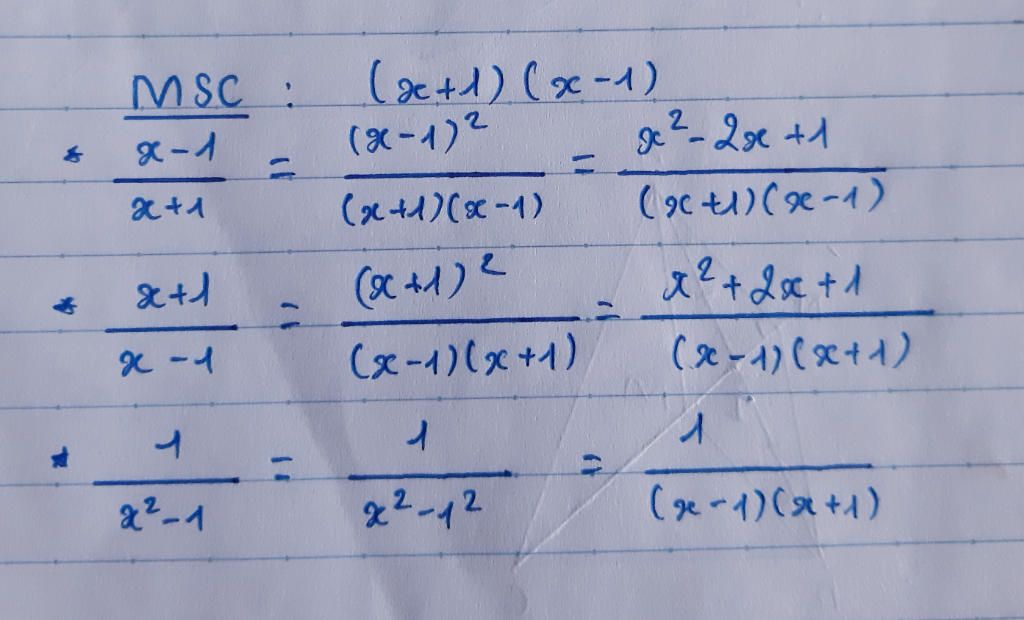 MSC : (x+1)(x-1)
* \frac{x-1}{x+1} = \frac{(x-1)^2}{(x+1)(x-1)} = \frac{x^2-2x+1}{(x+1)(x-1)}
* \frac{x+1}{x-1} = \frac{(x+1)^2}{(x-1)(x+1)} = \frac{x^2+2x+1}{(x-1)(x+1)}
* \frac{1}{x^2-1} = \frac{1}{x^2-1^2} = \frac{1}{(x-1)(x+1)}